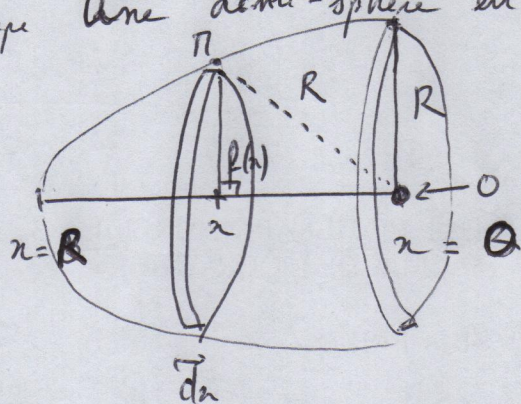 Une demi-sphère en
M
R
R
f(x)
O
x = R
x
x = O
dx